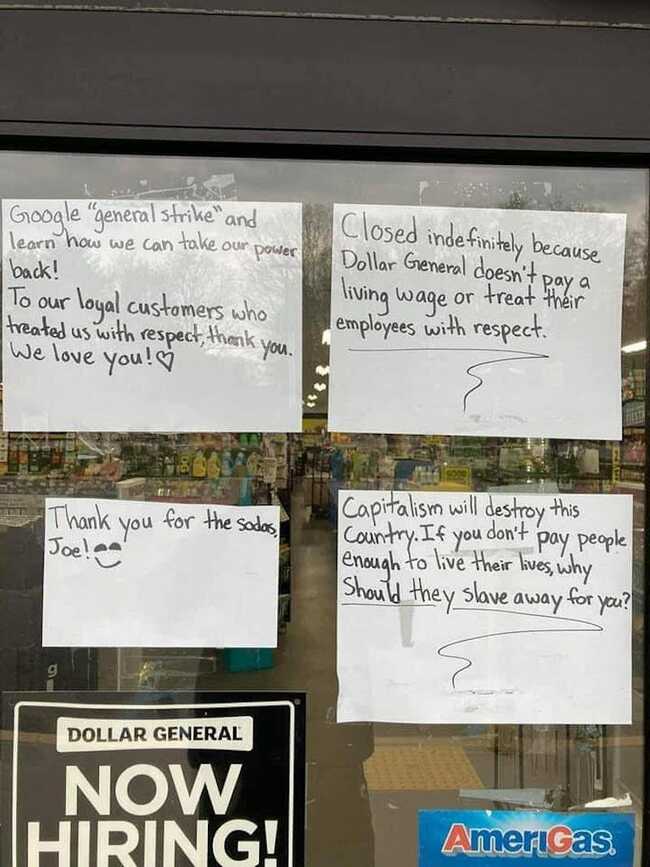 Google "general strike" and
learn how we can take our power
back!
To our loyal customers who
treated us with respect, thank you.
We love you!♡
Closed indefinitely because
Dollar General doesn't pay a
living wage or treat their
employees with respect.
Thank you for the sodas,
Joe!
Capitalism will destroy this
Country. If you don't pay people
enough to live their lives, why
Should they slave away for you?
DOLLAR GENERAL
NOW
HIRING!
AmeriGas.